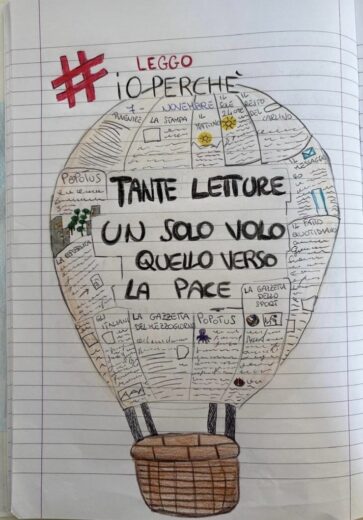 #
LEGGO
iO PERCHÈ
7- NOVEMBRE
LA STAMPA
IL MATTINO
IL SOLE 24 ORE
IL RESTO DEL CARLINO
POPOTUS
TANTE LETTURE
UN SOLO VOLO
QUELLO VERSO
LA PACE
IL FATTO QUOTIDIANO
LA GAZZETTA
DELLO
SPORT
LA GAZZETTA
DEL MEZZOGIORNO
POPOTUS